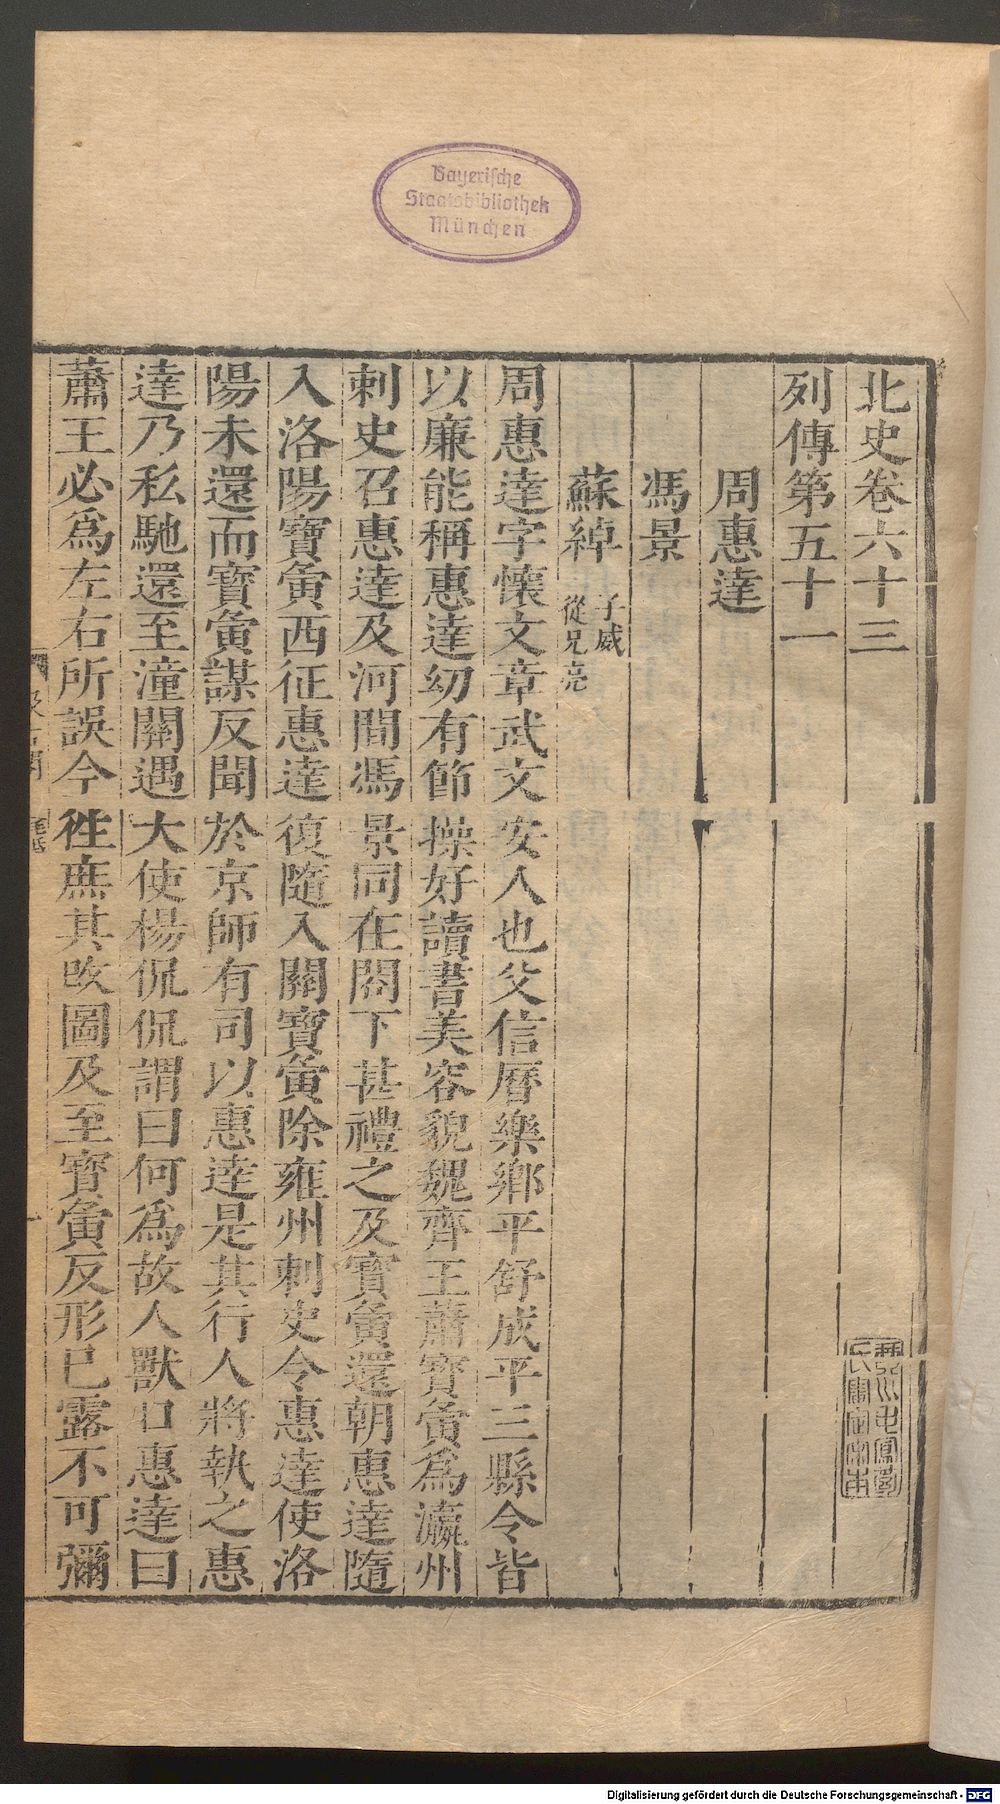 Bayerische
Staatsbibliothek
München
北史卷六十三
列傳第五十一
周惠達
馮景
蘇綽 子威 從兄亮
周惠達字懷文章武文安人也父信歷樂鄉平舒成平三縣令皆
以廉能稱惠達幼有節操好讀書美容貌魏齊王蕭寶夤爲瀛州
刺史召惠達及河間馮景同在閤下甚禮之及寶夤還朝惠達隨
入洛陽寶夤西征惠達復隨入關寶夤除雍州刺史令惠達使洛
陽未還而寶夤謀反聞於京師有司以惠達是其行人將執之惠
達乃私馳還至潼關遇大使楊侃侃謂曰何爲故人獸口惠達曰
蕭王必爲左右所誤今徃庶其改圖及至寶夤反形已露不可彌
Digitalisierung gefördert durch die Deutsche Forschungsgemeinschaft - DFG